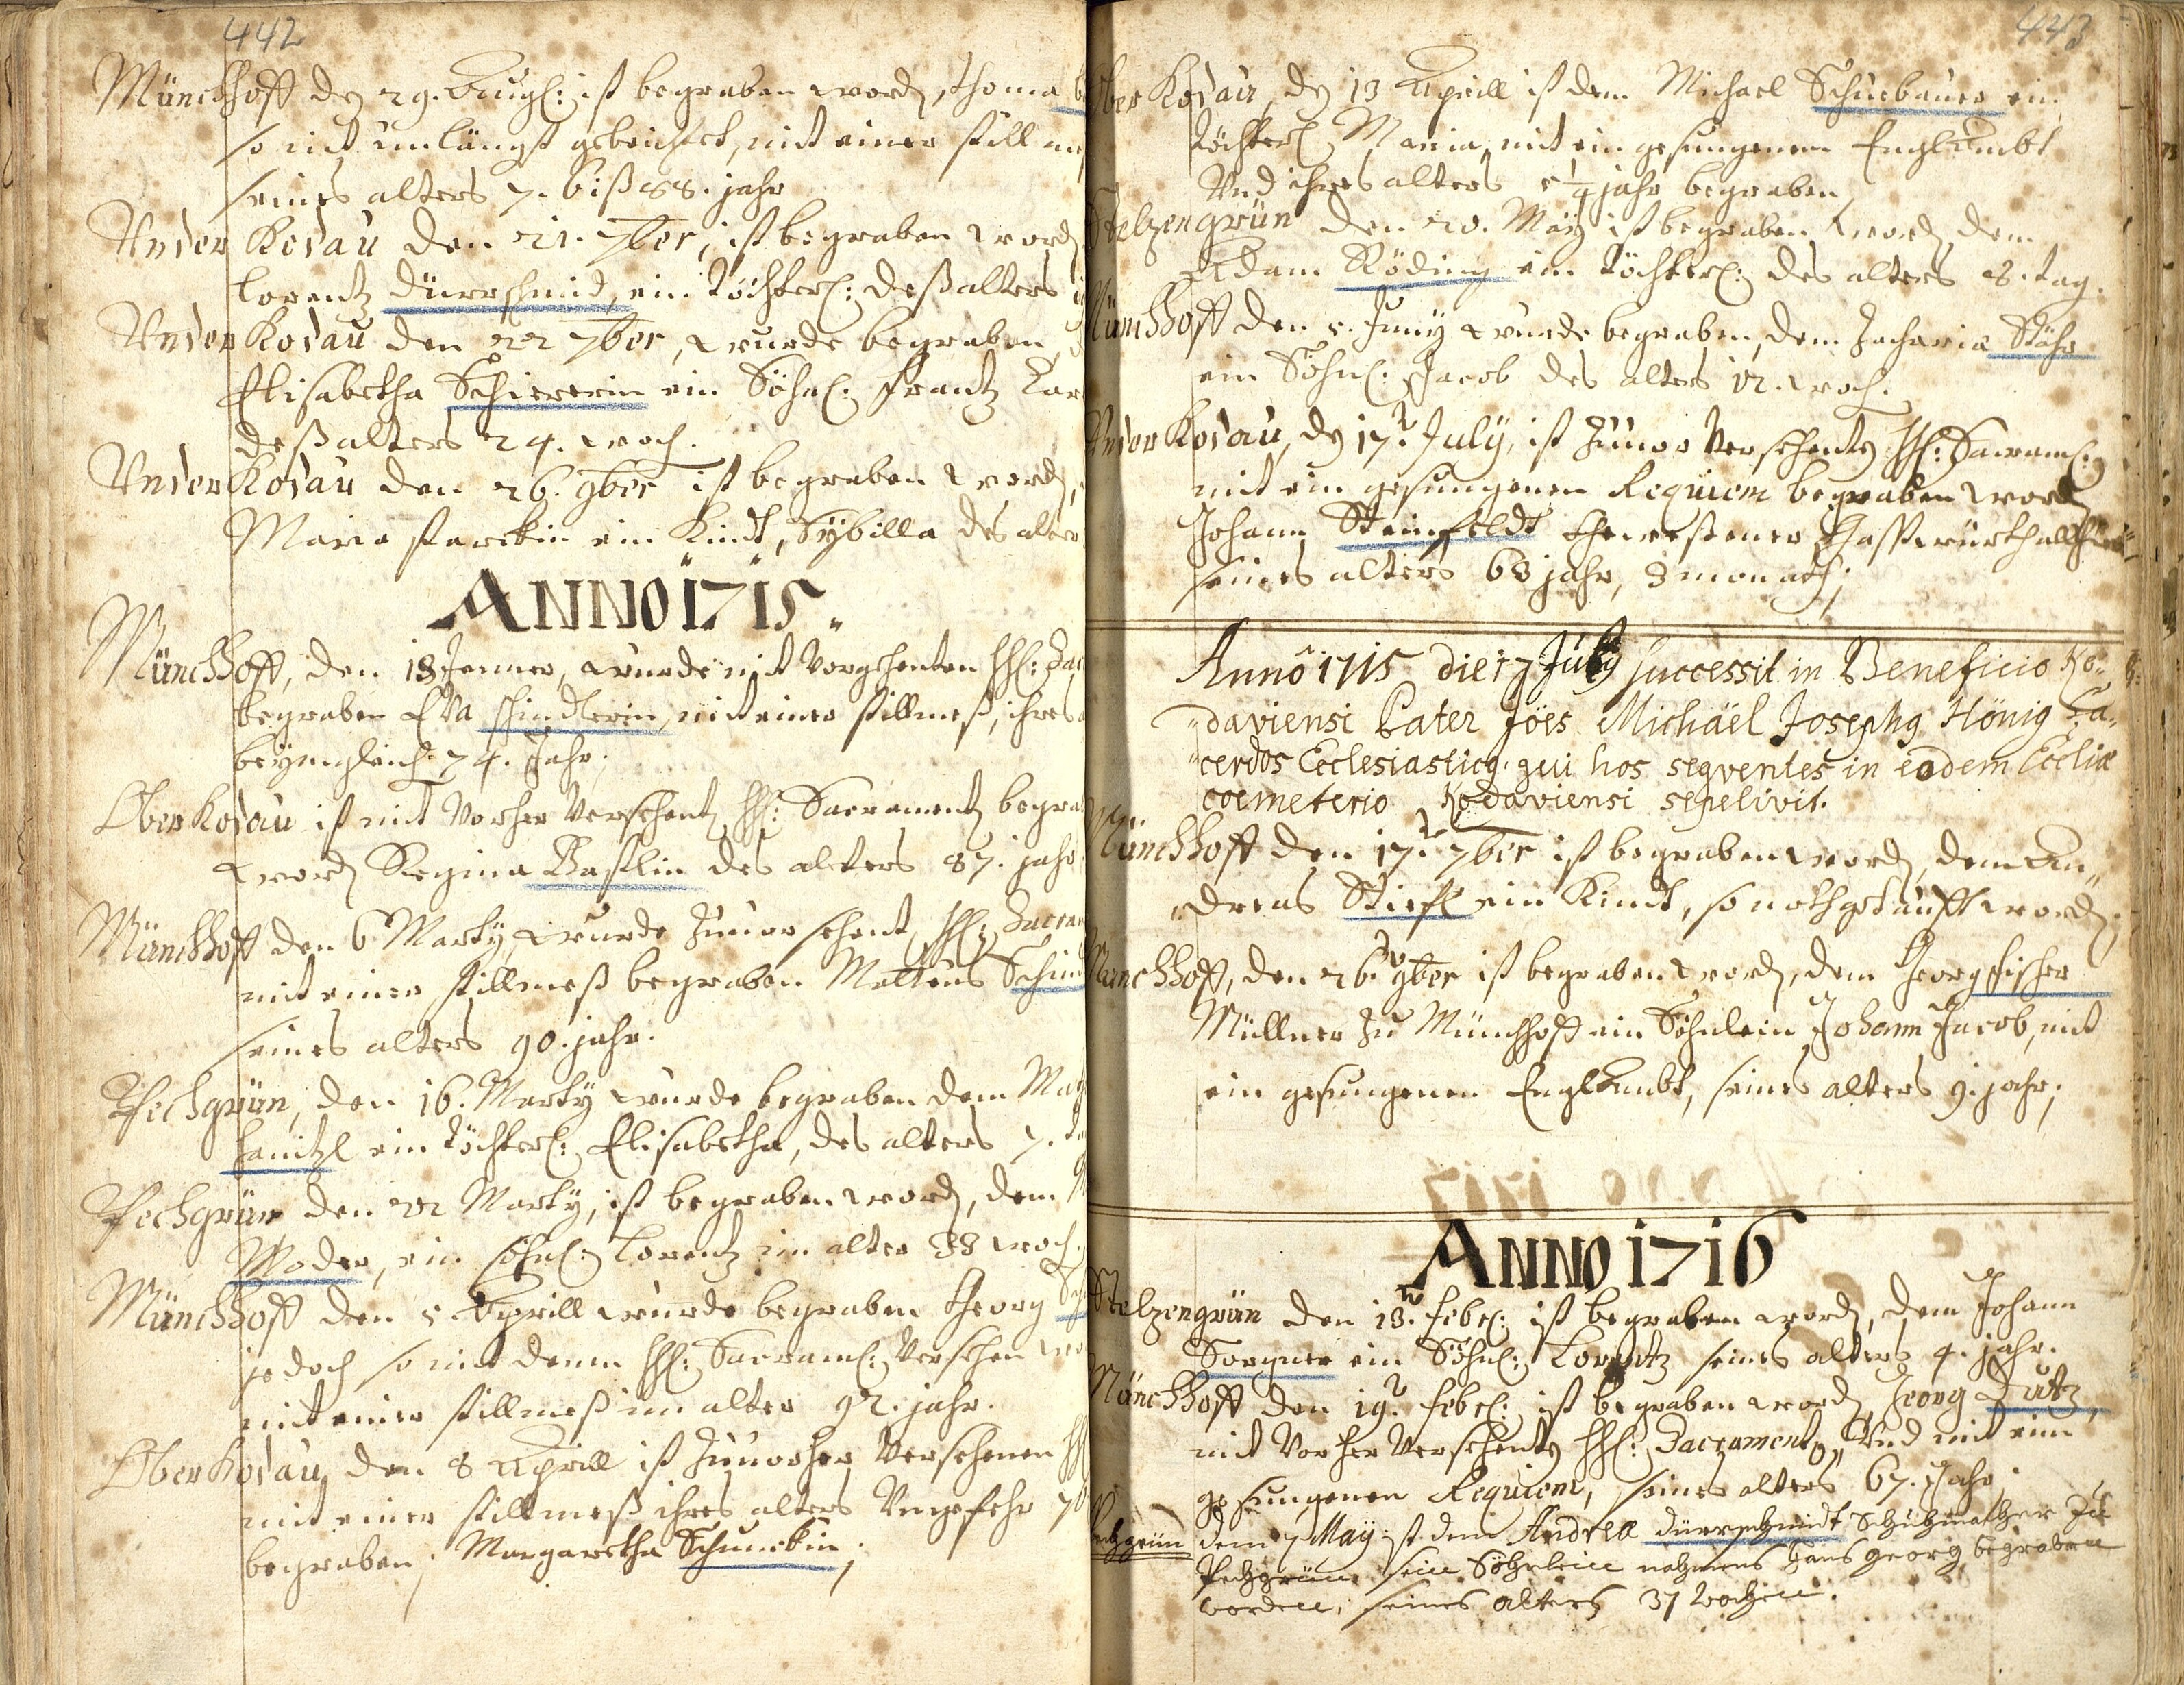 442
Münchhoff den 29. Augl: ist begraben worden, Thoma
so nit unlängst gebeichtet, mit einer still
seines alters 7. biß 88. jahr
Vnder Kodau den 21. 7ber, ist begraben worden
Lorentz Dürrschmid, ein Töchterl: deß alters
Vnder Kodau den 22 7ber, wurde begraben
Elisabetha Schirerin ein Söhnl: Frantz
deß alters 24. woch.
Vnder Kodau den 26. 9ber ist begraben worden,
Maria starckin ein Kindt, Sybilla des alter
ANNO 1715.
Münchhoff, den 18 Jenner, wurde mit vorgehenten hhl:
begraben Eva schindlerin, mit einer stillmeß, ihres
beÿengleich 74. Jahr;
Ober Kodau ist mit vorher versehent hhl: Sacrament begra
worden Regina Bastlin des alters 87. jahr
Münchhoff den 6 Martÿ, wurde zuuor sehent hhl: Sacram
mit einer stillmeß begraben Matteus Schind
seines alters 90. jahr.
Pechgrün, den 16. Martÿ wurde begraben dem
Hanickl ein Töchterl: Elisabetha, des alters 7.
Pechgrün den 22 Martÿ, ist begraben worden, dem
Moder, ein söhnl: Lorentz im alter 38 woch.
Münchhoff den 5. Aprill wurde begraben Georg
jedoch so mit denen hhl: Sacraml: versehen
mit einer stillmeß im alter 92. jahr.
Ober Kodau, den 8 Aprill ist zuuorher versehenen
mit einer stillmeß ihres alters Vngefehr 70
begraben; Margaretha Schunckin;
443
Ober Kodau, den 13 Aprill ist dem Michael Schuebauer ein
Töchterl Maria, mit ein gesungenem Englambt
Vnd ihres alters 5 1/4 jahr begraben
Stelzengrün den 20. Maÿ ist begraben worden dem
Adam Röding ein Töchterl: des alters 8. tag.
Münchhoff den 5. Junÿ wurde begraben, dem Zacharia Stöhr
ein Söhnl: Jacob des alters 12. woch.
Vnder Kodau, den 17. Julÿ, ist zuuor versehenten hhl: Sacraml:
mit ein gesungenen Requiem begraben worden
Johann Steinfeldt gewesener
seines alters 63 jahr, 3 monath;
Annô 1715 die 17 Julÿ successit in Beneficio Ko-
daviensi Pater Jöes Michaël Josephg Hönig Sa-
cerdos Ecclesiasticg. qui hos seqventes in eodem Eccliæ
coemeterio Kodaviensi sepelivit.
Münchhoff den 17. 7ber ist begraben worden, dem An-
dreas Stiefl ein Kindt, so nothgetaufft worden,
Münchhoff, den 26. 9ber ist begraben worden, dem Georg fischer
Müllner zu Münchhoff ein Söhnlein Johann Jacob, mit
ein gesungenen Englambt, seines alters 9. jahr;
ANNO 1716
Stelzengrün den 13. Febrl: ist begraben worden, dem Johann
Sorgner ein Söhnl: Lorentz seines alters 4. jahr.
Münchhoff den 19. Febrl: ist begraben worden, Georg Lutz,
mit vorher versehenten hhl: Sacramenten, Vnd mit ein
gesungenen Requiem, seines alters 67. Jahr
Pechgrün dem 7 May ist dem Andrea dürrschmidt Schuhmacher zu
Pechgrün sein Söhnlein nahmens hans georg begraben
worden, seines alters 37 wochen.